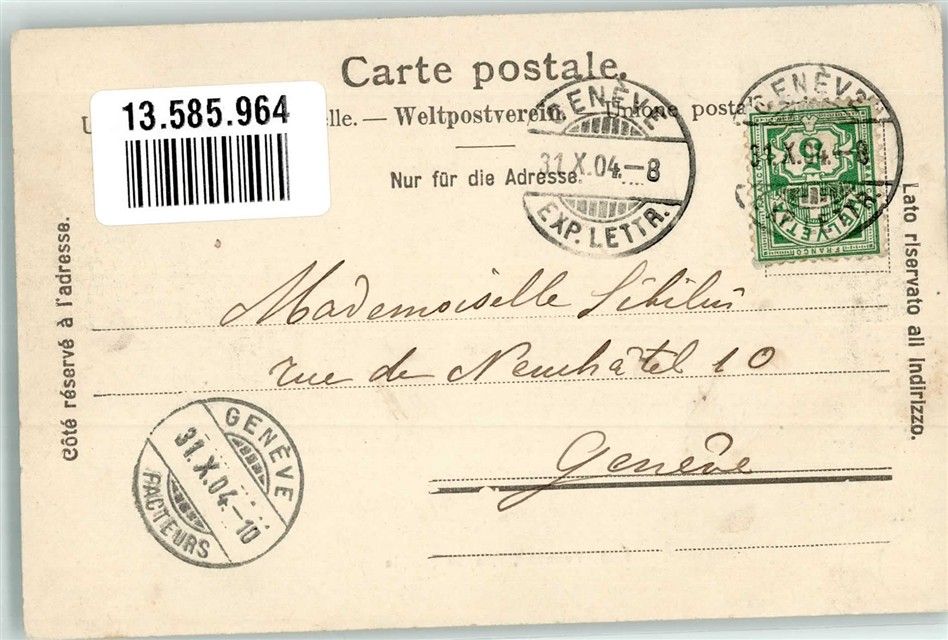 Carte postale.
13.585.964
lle. — Weltpostverein. — Unione postal
Nur für die Adresse.
GENÈVE
31.X.04.–8
EXP. LETTR.
GENÈVE
31.X.04.–8
EXP. LETTR.
FRANCO
Côté réservé à l'adresse.
Lato riservato all indirizzo.
Mademoiselle
rue de Neuchâtel 10
Genève
GENÈVE
31.X.04.–10
FACTEURS